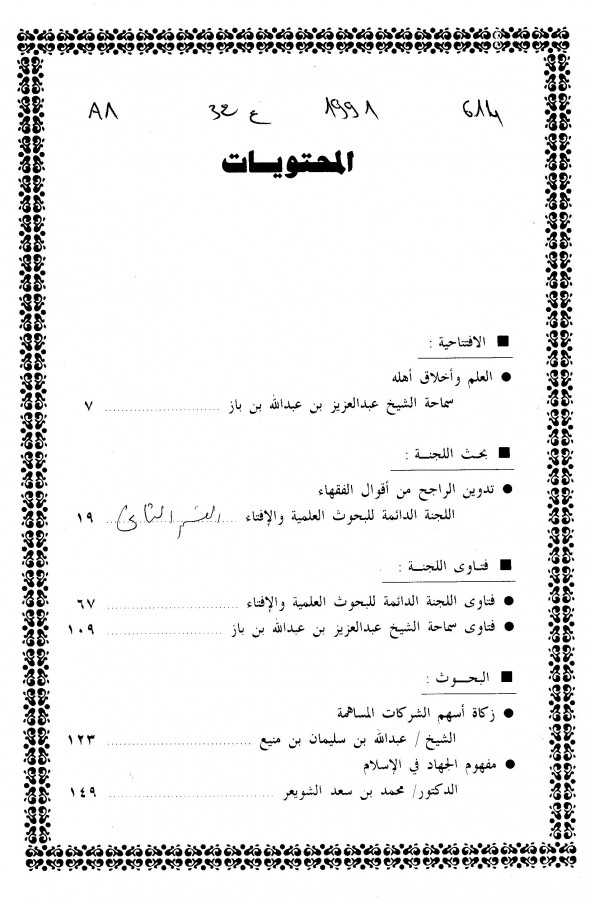 614 1991 ع 32 A1
المحتويات
■ الافتتاحية :
● العلم وأخلاق أهله
سماحة الشيخ عبدالعزيز بن عبدالله بن باز ........................ ٧
■ بحث اللجنــة :
● تدوين الراجح من أقوال الفقهاء
اللجنة الدائمة للبحوث العلمية والإفتاء ........................ القسم الثاني ١٩
■ فتـاوى اللجنـة :
● فتاوى اللجنة الدائمة للبحوث العلمية والإفتاء ........................ ٦٧
● فتاوى سماحة الشيخ عبدالعزيز بن عبدالله بن باز ........................ ١٠٩
■ البحـــوث :
● زكاة أسهم الشركات المساهمة
الشيخ / عبدالله بن سليمان بن منيع ........................ ١٢٣
● مفهوم الجهاد في الإسلام
الدكتور/ محمد بن سعد الشويعر ........................ ١٤٩